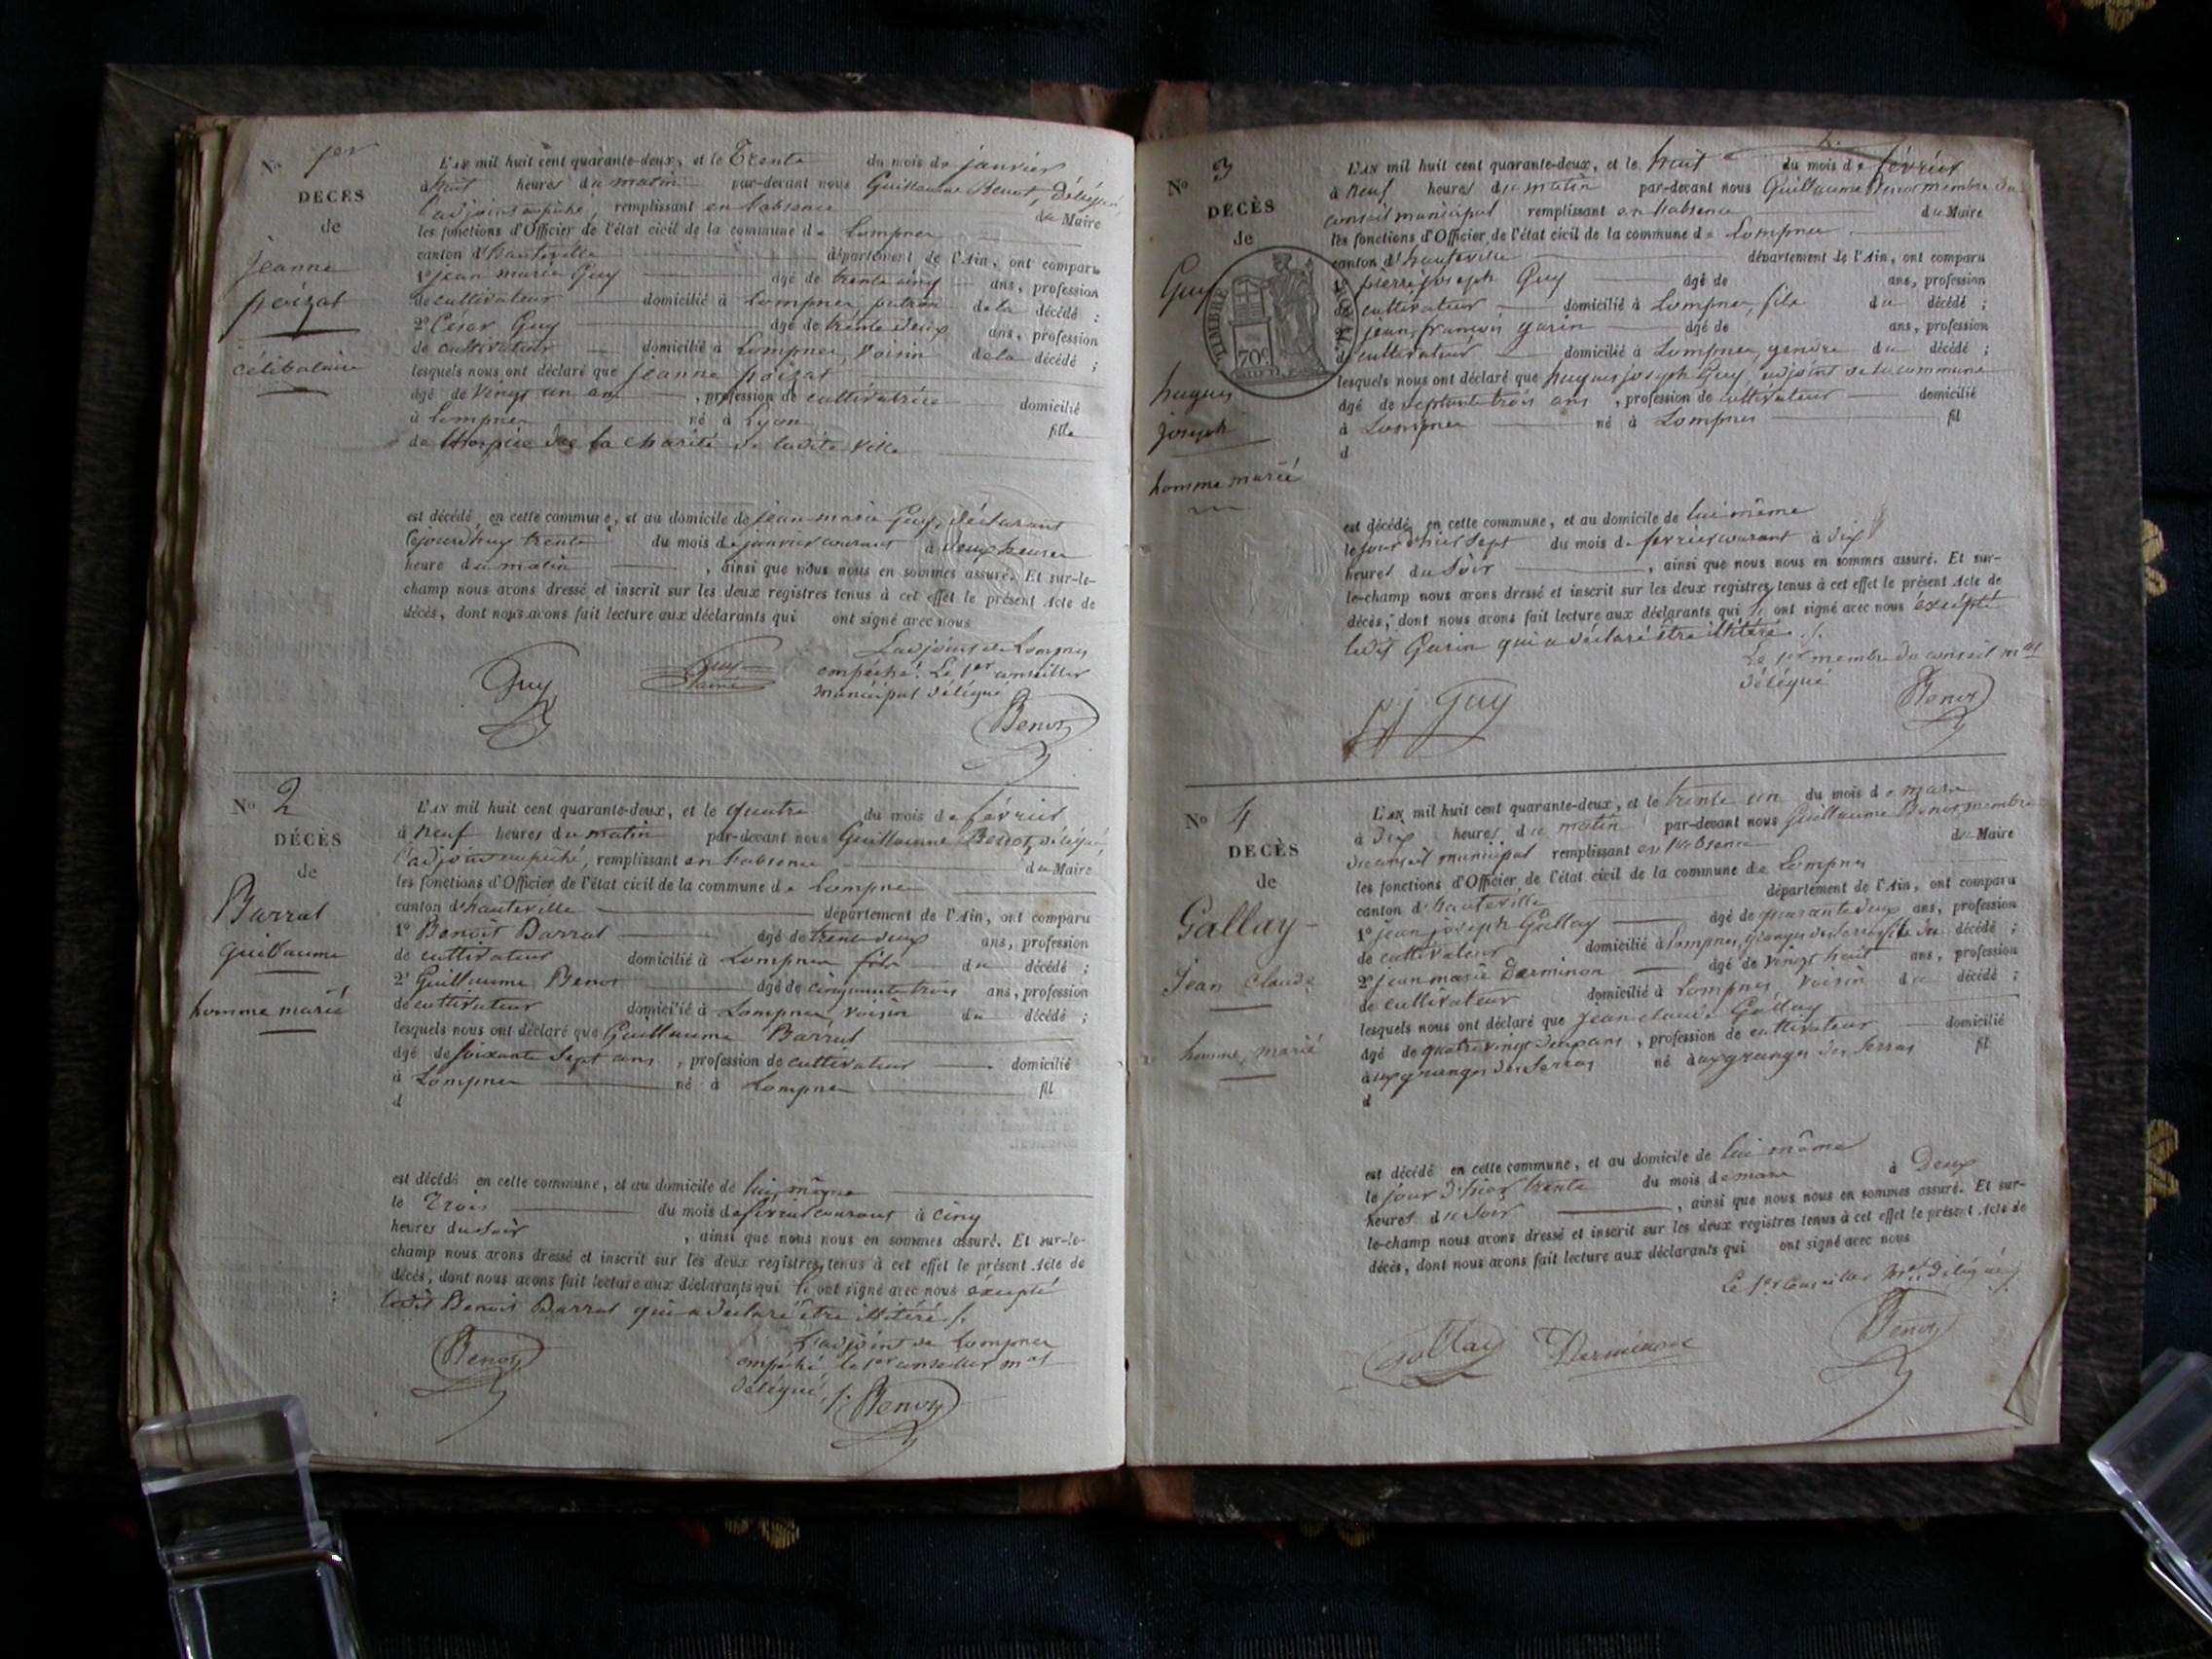 No 1er
DECES
de
Jeanne
poizat
célibataire
L'AN mil huit cent quarante-deux, et le Trente du mois de janvier
à huit heures du matin par-devant nous Guillaume Benot, Délégué
l'adjoint empêché, remplissant en l'absence du Maire
les fonctions d'Officier de l'état civil de la commune de Lompnes
canton d'hauteville département de l'Ain, ont comparu
1° jean marie Guy âgé de trente cinq ans, profession
de cultivateur domicilié à Lompnes, patron de la décédé ;
2° César Guy âgé de trente deux ans, profession
de cultivateur domicilié à Lompnes, voisin de la décédé ;
lesquels nous ont déclaré que Jeanne poizat
âgé de vingt un ans, profession de cultivatrice domicilié
à Lompnes né à Lyon fille
de l'hospice de la charité de ladite ville
est décédé en cette commune, et au domicile de jean marie Guy, déclarant
cejourd'huy trente du mois de janvier courant à deux heures
heure du matin, ainsi que nous nous en sommes assuré. Et sur-le-
champ nous avons dressé et inscrit sur les deux registres tenus à cet effet le présent Acte de
décès, dont nous avons fait lecture aux déclarants qui ont signé avec nous
L'adjoint de Lompnes
empêché. Le 1er conseiller
municipal délégué
Guy
Guy
Benot
No 2
DÉCÈS
de
Barral
Guillaume
homme marié
L'AN mil huit cent quarante-deux, et le quatre du mois de février
à neuf heures du matin par-devant nous Guillaume Benot, délégué,
l'adjoint empêché, remplissant en l'absence du Maire
les fonctions d'Officier de l'état civil de la commune de Lompnes
canton d'hauteville département de l'Ain, ont comparu
1° Benoît Barral âgé de trente deux ans, profession
de cultivateur domicilié à Lompnes fils du décédé ;
2° Guillaume Benot âgé de cinquante trois ans, profession
de cultivateur domicilié à Lompnes, voisin du décédé ;
lesquels nous ont déclaré que Guillaume Barral
âgé de soixante sept ans, profession de cultivateur domicilié
à Lompnes né à Lompnes fil
d
est décédé en cette commune, et au domicile de lui même
le Trois du mois de février courant à cinq
heures du soir, ainsi que nous nous en sommes assuré. Et sur-le-
champ nous avons dressé et inscrit sur les deux registres tenus à cet effet le présent Acte de
décès, dont nous avons fait lecture aux déclarants qui ont signé avec nous excepté
ledit Benoit Barral qui a déclaré être illitéré ./.
L'adjoint de Lompnes
empêché le 1er conseiller mal
délégué, ./.
Benot
Benot
No 3
DÉCÈS
de
Guy
hugues
joseph
homme marié
TIMBRE
70c
L'AN mil huit cent quarante-deux, et le huit du mois de février
à neuf heures du matin par-devant nous Guillaume Benot membre du
conseil municipal remplissant en l'absence du Maire
les fonctions d'Officier de l'état civil de la commune de Lompnes
canton d'hauteville département de l'Ain, ont comparu
pierre joseph Guy âgé de ans, profession
de cultivateur domicilié à Lompnes, fils du décédé ;
2° jean françois garin âgé de ans, profession
de cultivateur domicilié à Lompnes, gendre du décédé ;
lesquels nous ont déclaré que hugues joseph Guy, adjoint de la commune
âgé de septante trois ans, profession de cultivateur domicilié
à Lompnes né à Lompnes fil
d
est décédé en cette commune, et au domicile de lui même
le jour d'hier sept du mois de février courant à dix
heures du soir, ainsi que nous nous en sommes assuré. Et sur-
le-champ nous avons dressé et inscrit sur les deux registres tenus à cet effet le présent Acte de
décès, dont nous avons fait lecture aux déclarants qui ont signé avec nous excepté
ledit Garin qui a déclaré être illitéré ./.
Le 1er membre du conseil mal
délégué
pj Guy
Benot
No 4
DECÈS
de
Gallay
Jean Claude
homme marié
L'AN mil huit cent quarante-deux, et le trente un du mois de mars
à dix heures du matin par-devant nous Guillaume Benot membre
du conseil municipal remplissant en l'absence du Maire
les fonctions d'Officier de l'état civil de la commune de Lompnes
canton d'hauteville département de l'Ain, ont comparu
1° jean joseph Gallay âgé de quarante deux ans, profession
de cultivateur domicilié à Lompnes, granges des Serras fils du décédé ;
2° jean marie Derminon âgé de vingt huit ans, profession
de cultivateur domicilié à Lompnes, voisin du décédé ;
lesquels nous ont déclaré que jean claude Gallay
âgé de quatre vingt deux ans, profession de cultivateur domicilié
aux granges des Serras né aux granges des Serras fil
d
est décédé en cette commune, et au domicile de lui même
le jour d'hier trente du mois de mars à deux
heures du soir, ainsi que nous nous en sommes assuré. Et sur-
le-champ nous avons dressé et inscrit sur les deux registres tenus à cet effet le présent Acte de
décès, dont nous avons fait lecture aux déclarants qui ont signé avec nous
Le 1er Conseiller Mal délégué ./.
Gallay Derminon Benot